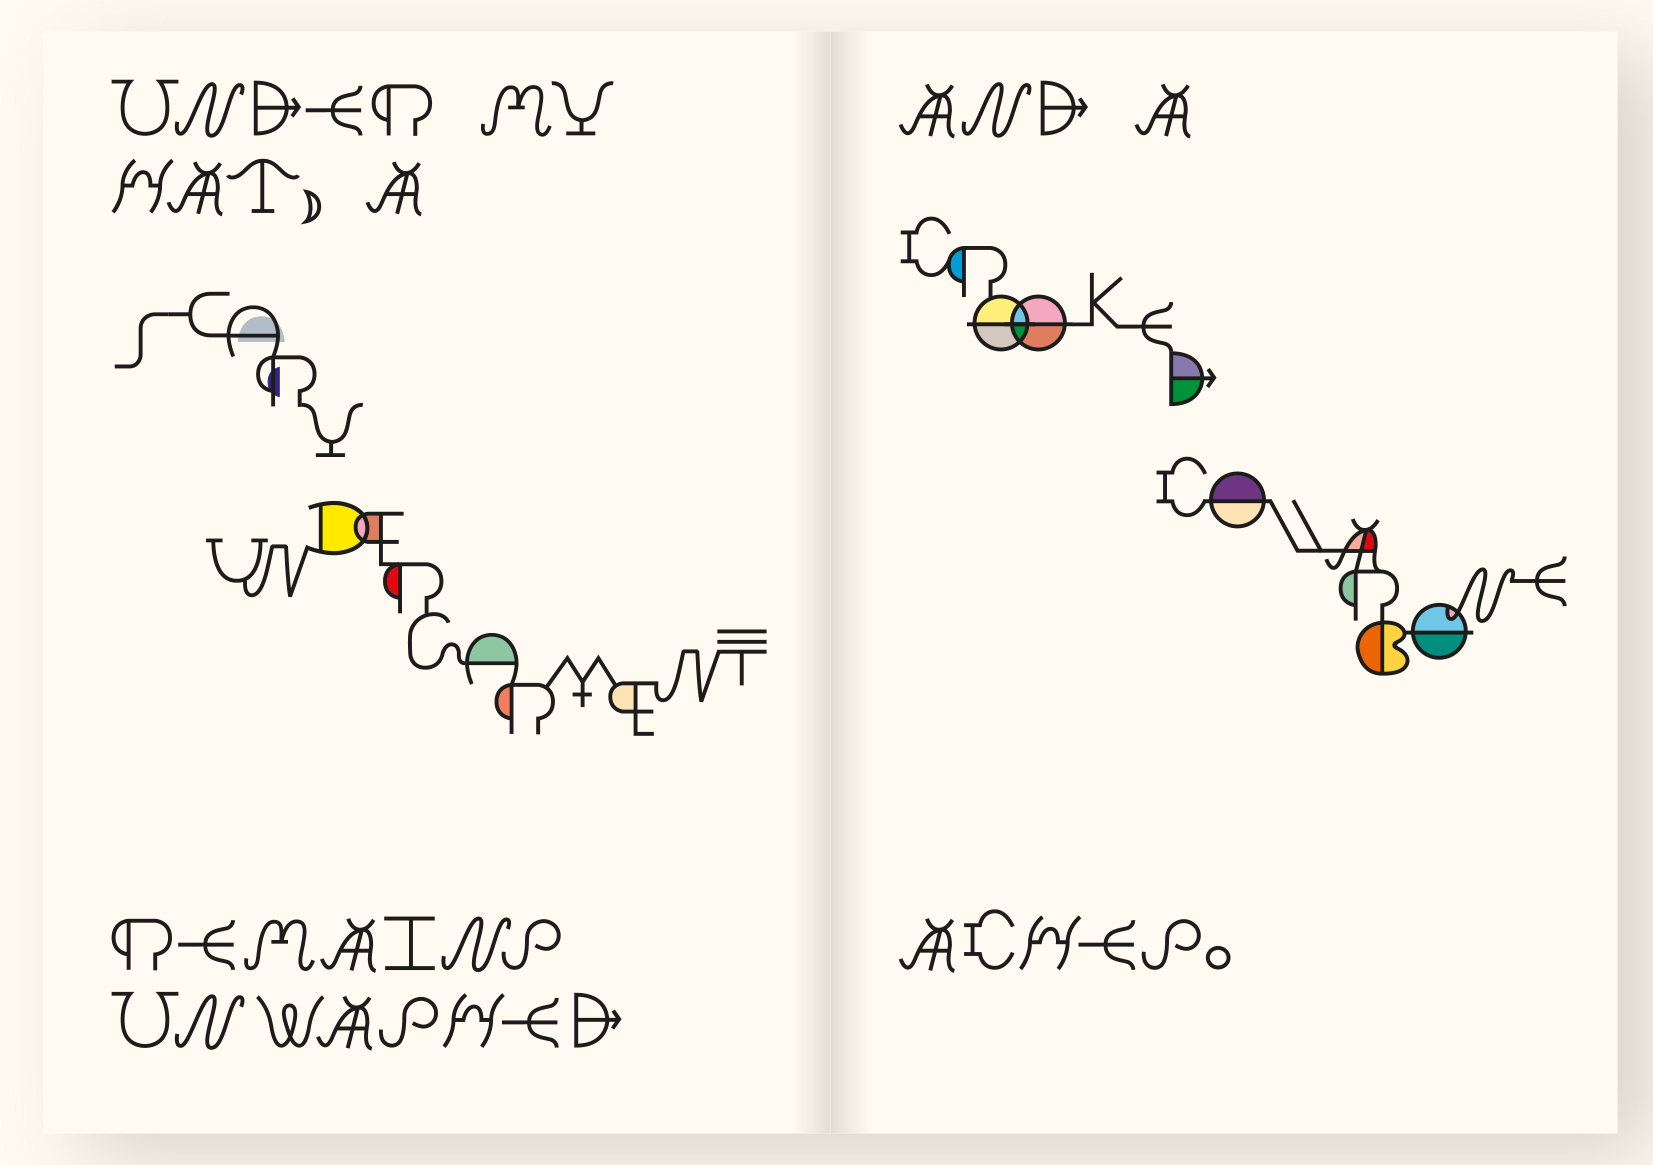 UNDER MY
HAT, A
SCARY
UNDERGARMENT
REMAINS
UNWASHED
AND A
CROOKED
COLLARBONE
ACHES.